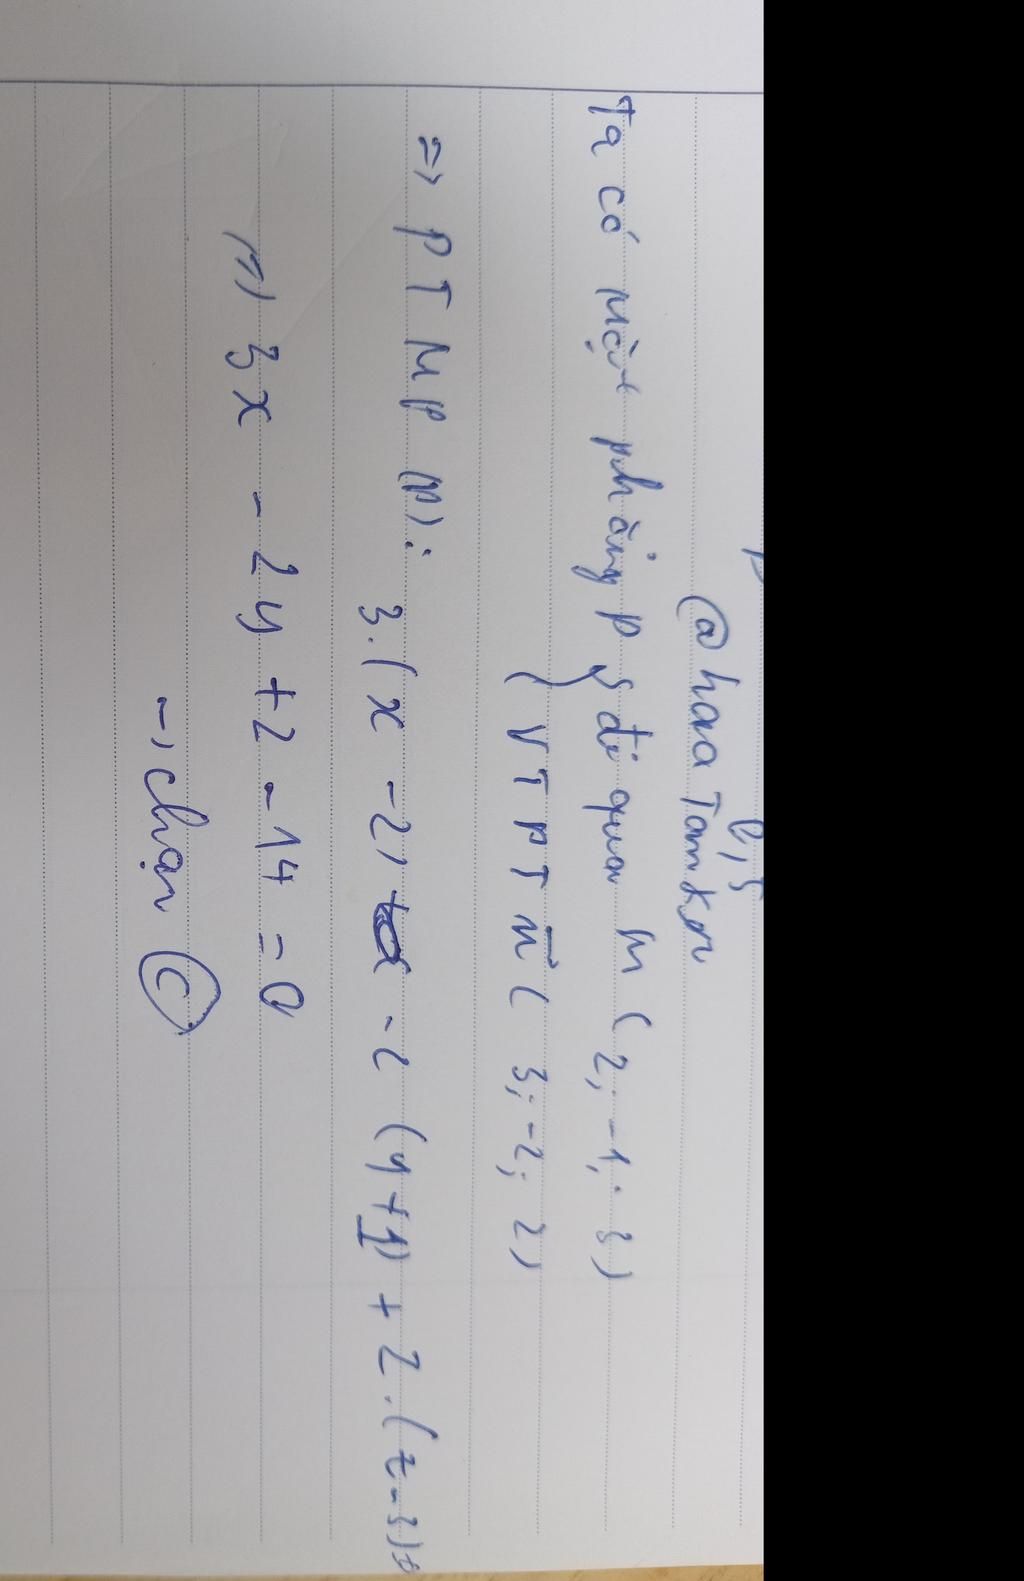 @hoa Tamkn
Ta có mặt phẳng P { đi qua M ( 2; -1; 3 )
{ VTPT n ( 3; -2; 2 )
=> PT MP (P):
3.(x -2) -2 (y+1) + 2.(z-3)=
3x - 2y + 2 - 14 = 0
-> chọn C